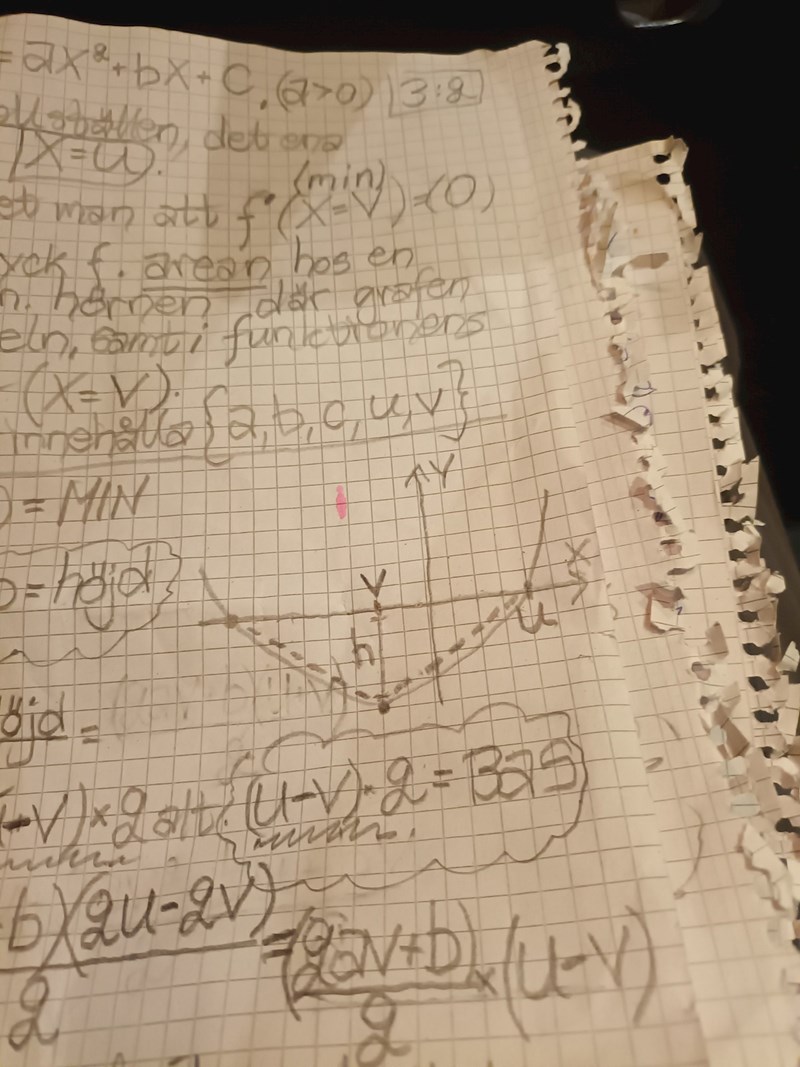 = ax²+bx+c. (a>0) 3:2
det ena
x=u.
et man att f'(x=v)=(0)
(min)
yck f. arean hos en
n. hörnen där grafen
eln, samt i funktionens
(x=v).
innehålla {a,b,c,u,v}
) = MIN
Y
= höjd
v
x
u
h
öjd =
-v)×2 alt. (u-v)·2 = BAS
b)(2u-2v)/2 = (2av+b)/2 × (u-v)